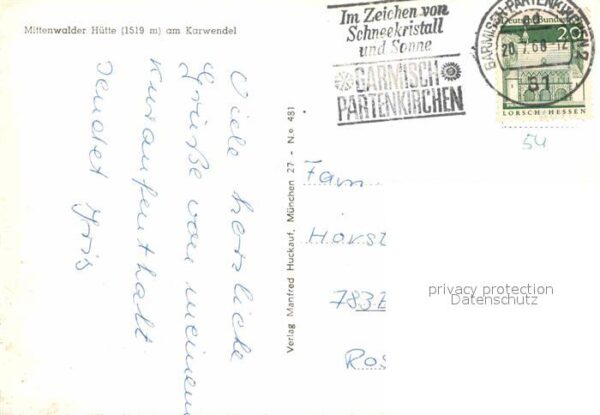 Mittenwalder Hütte (1519 m) am Karwendel
Viele herzliche
Grüße von meinem
Kuraufenthalt
sendet Iris
Verlag Manfred Huckauf, München 27 - N.o 481
Im Zeichen von
Schneekristall
und Sonne
GARMISCH
PARTENKIRCHEN
GARMISCH-PARTENKIRCHEN 2
20.7.68-12
81
Deutsche Bundespost
20
LORSCH/HESSEN
54
Fam
Horst
783
Ros
privacy protection
Datenschutz